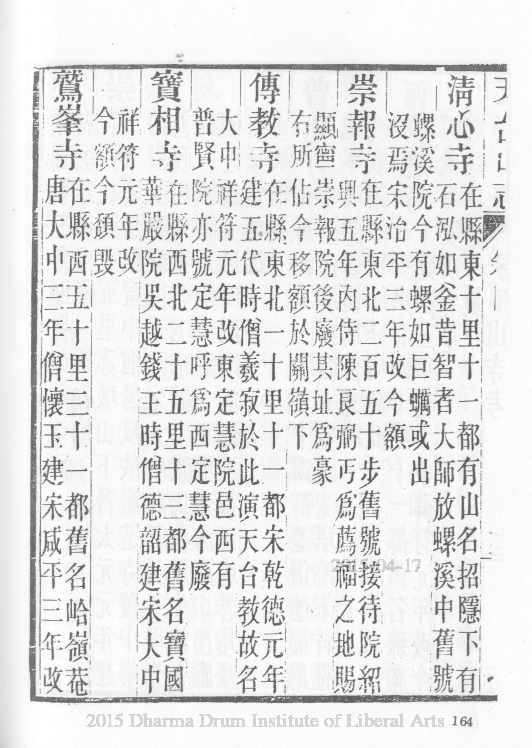 天台山志
清心寺 在縣東十里十一都有山名招隱下有
石泓如釜昔智者大師放螺溪中舊號
螺溪院今有螺如巨蠣或出
沒焉宋治平三年改今額
崇報寺 在縣東北二百五十步舊號接待院紹
興五年內侍陳良弼丐爲薦福之地賜
顯寧崇報院後廢其址爲豪
右所佔今移額於關嶺下
傳教寺 在縣東北一十里十一都宋乾德元年
建五代時僧羲寂於此演天台教故名
大中祥符元年改東定慧院邑西有
普賢院亦號定慧呼爲西定慧今廢
寶相寺 在縣西北二十五里十三都舊名寶國
華嚴院吳越錢王時僧德韶建宋大中
祥符元年改
今額今頹毀
鷲峯寺 在縣西五十里二十一都舊名峇嶺菴
唐大中三年僧懷玉建宋咸平三年改
2015 Dharma Drum Institute of Liberal Arts
164